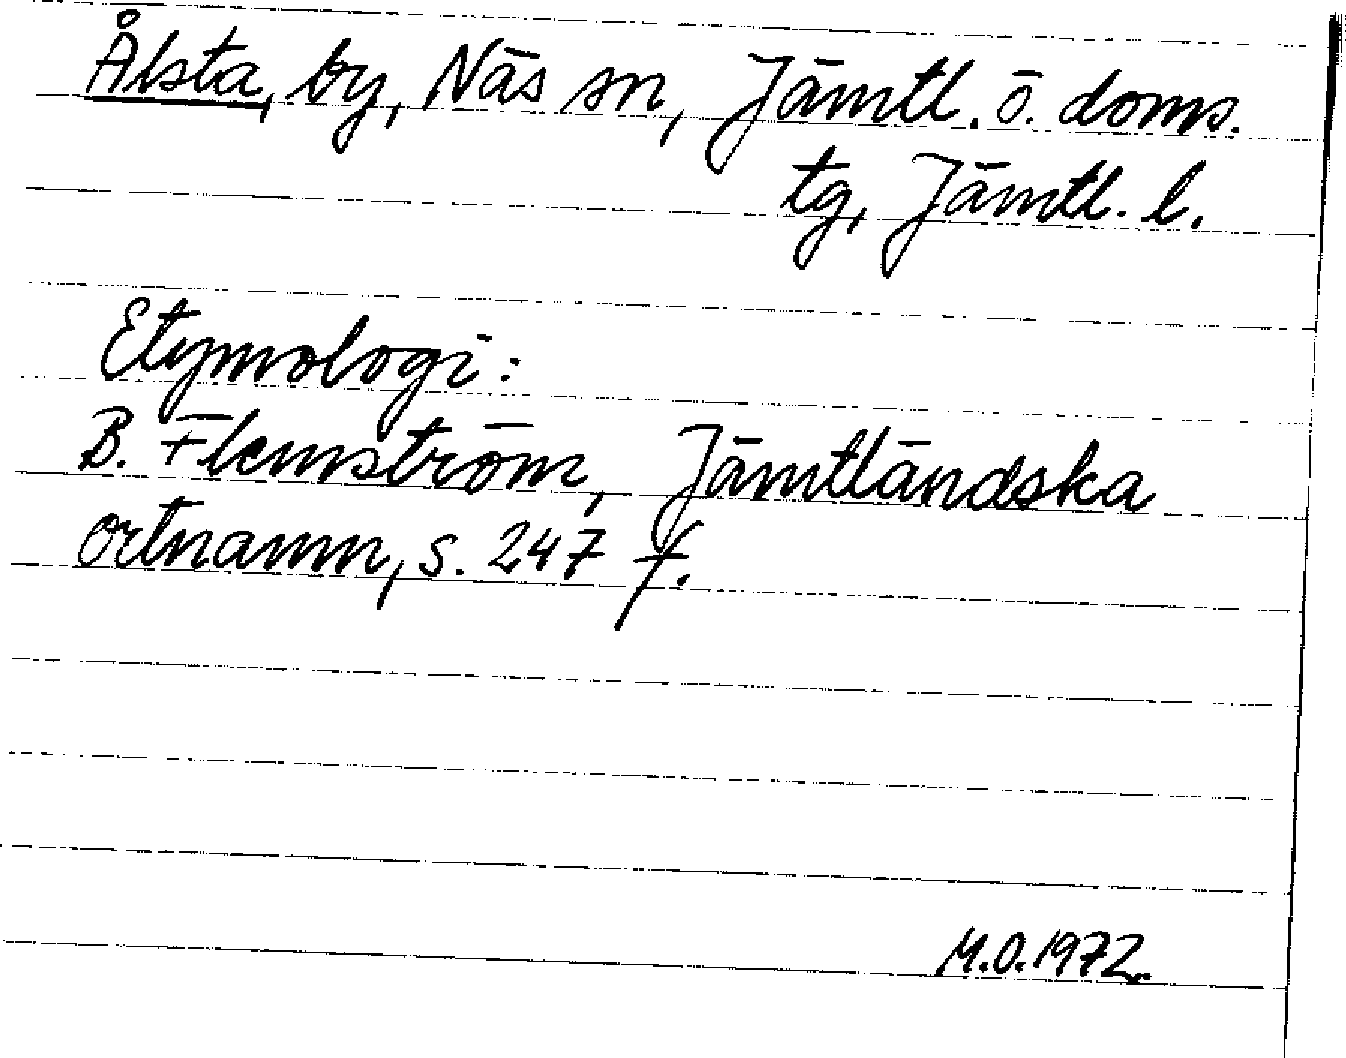 Ålsta, by, Näs sn, Jämtl. ö. doms.
tg, Jämtl. l.
Etymologi:
B. Flemström, Jämtländska
ortnamn, s. 247 f.
M.O.1972.